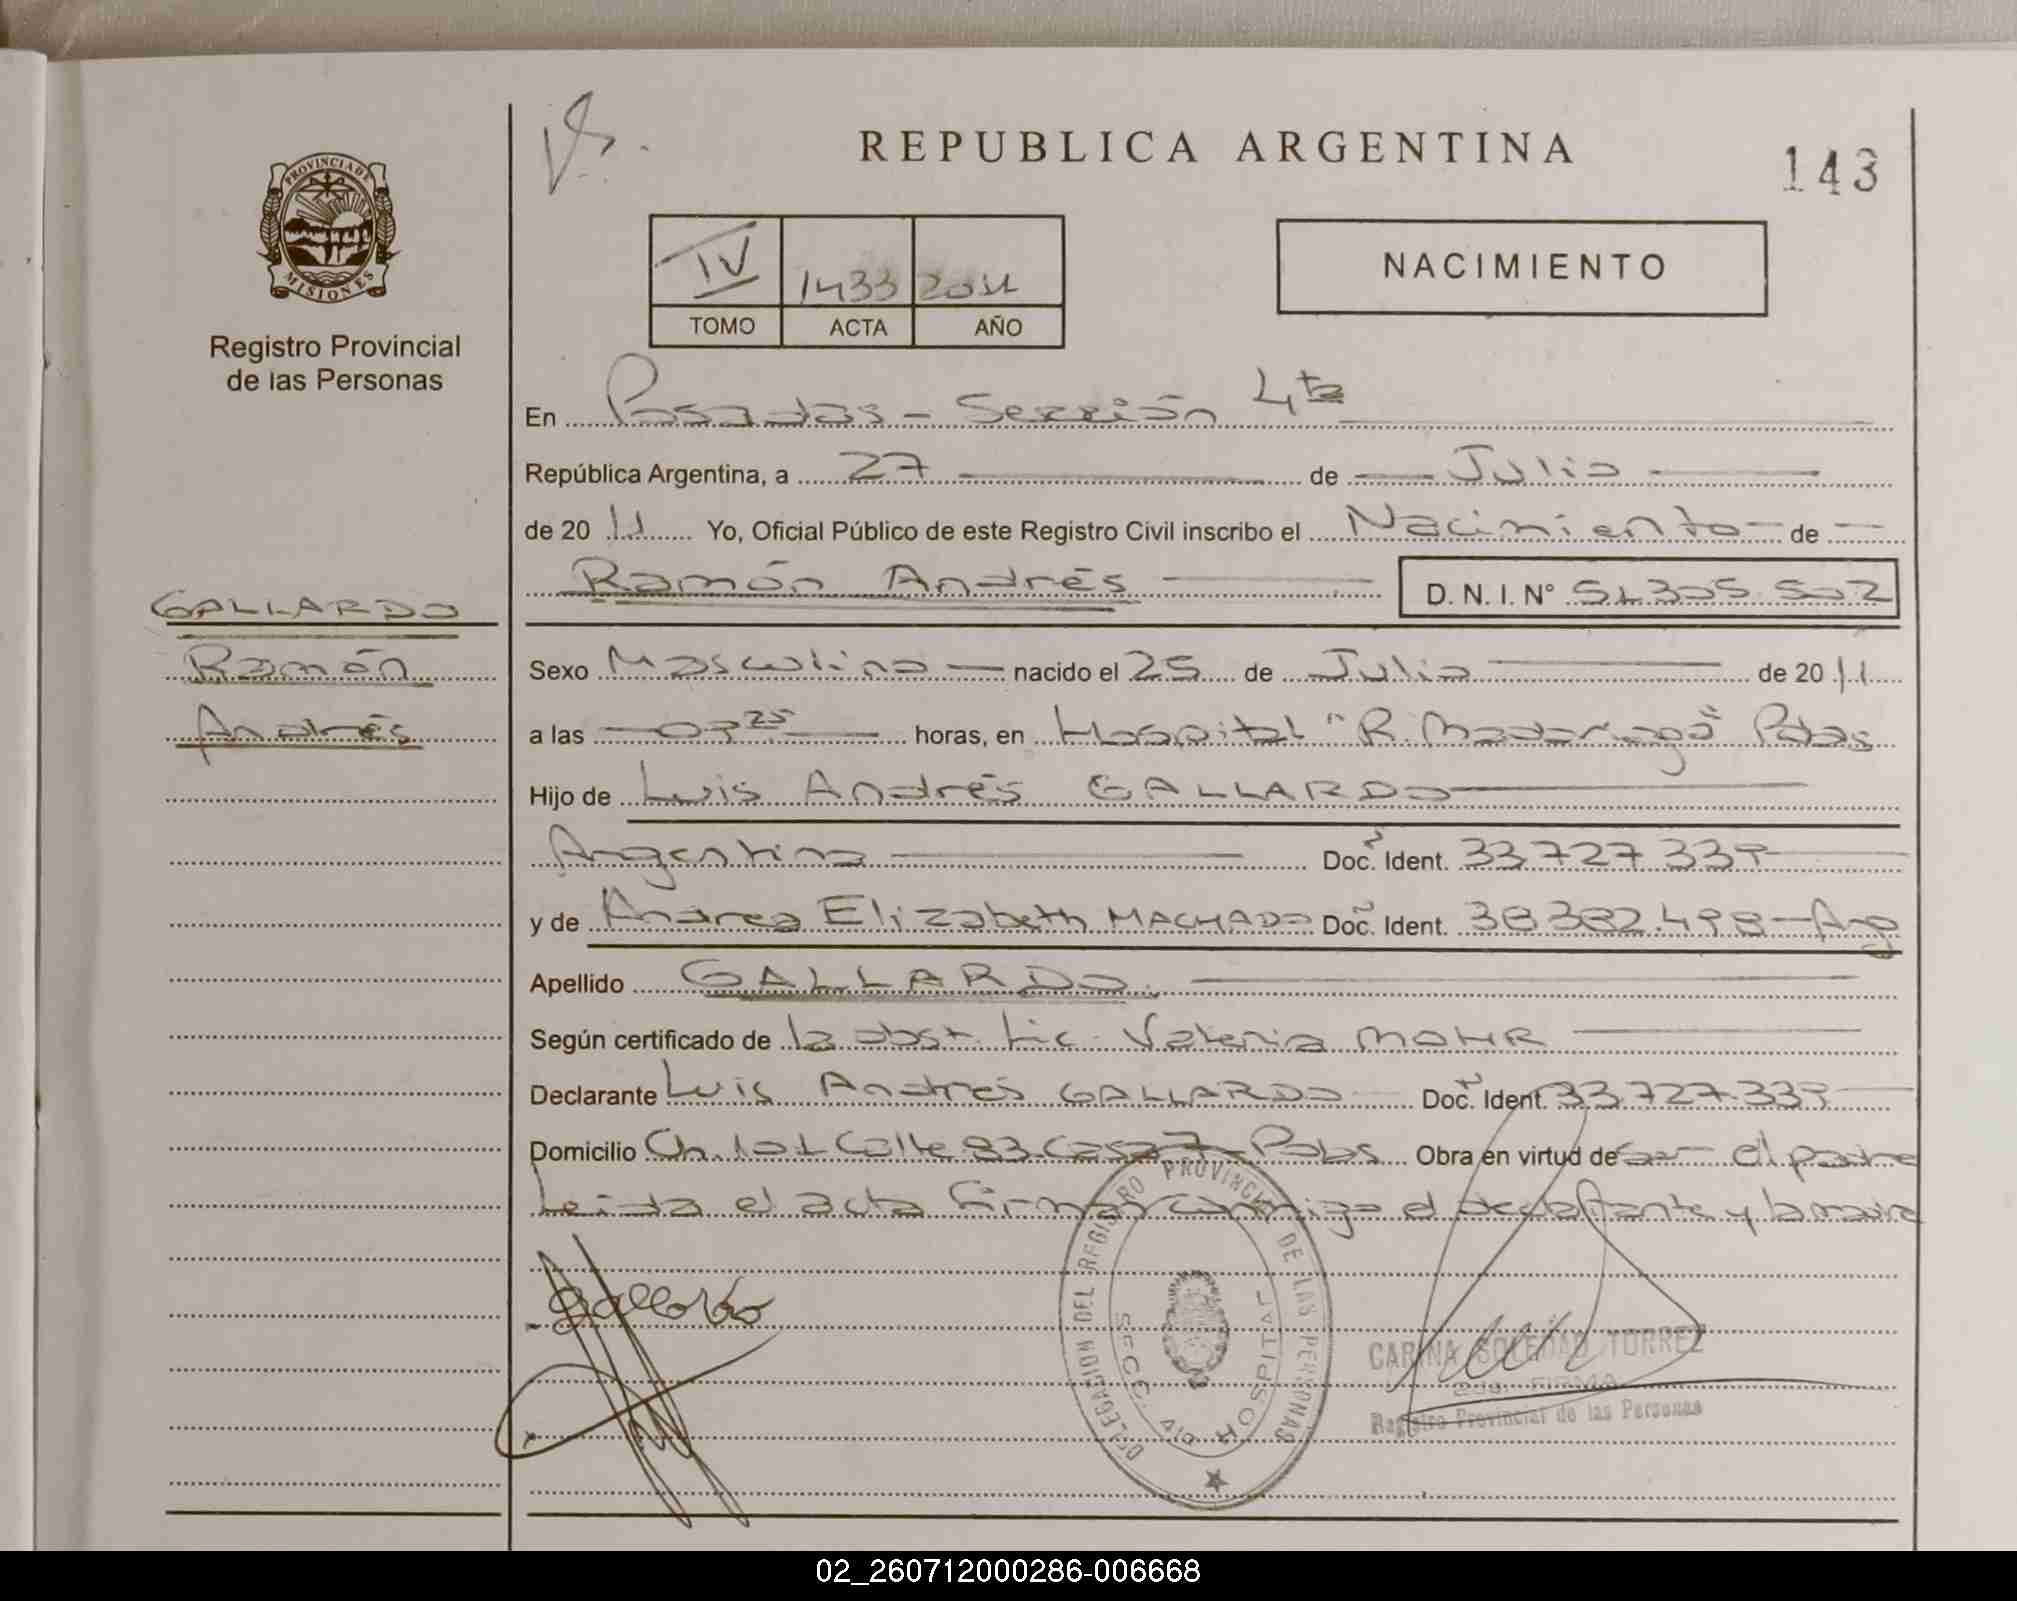 REPUBLICA ARGENTINA
143
PROVINCIA DE
MISIONES
Registro Provincial
de las Personas
IV 1433 2011
TOMO ACTA AÑO
NACIMIENTO
En Posadas - Sección 4ta
República Argentina, a 27 de Julio
de 2011 Yo, Oficial Público de este Registro Civil inscribo el Nacimiento de
Ramón Andrés D. N. I. N° 51.305.502
GALLARDO
Ramón
Andrés
Sexo Masculino nacido el 25 de Julio de 2011
a las 07 25 horas, en Hospital "R. Madariaga" Pdas
Hijo de Luis Andrés GALLARDO
Argentino Doc. Ident. 33.727.339
y de Andrea Elizabeth MACHADO Doc. Ident. 38.382.498 - Arg
Apellido GALLARDO.
Según certificado de la obst. Lic. Valeria MOHR
Declarante Luis Andrés GALLARDO Doc. Ident. 33.727.339
Domicilio Ch. 101 Calle 93 Casa 7 Pdas Obra en virtud de ser el padre
Leida el acta firman conmigo el declarante y la madre
Gallardo
DELEGACION DEL REGISTRO PROVINCIAL DE LAS PERSONAS
SECC. 4ta HOSPITAL
CARINA SOLEDAD TORREZ
2da. FIRMA
Registro Provincial de las Personas
02_260712000286-006668